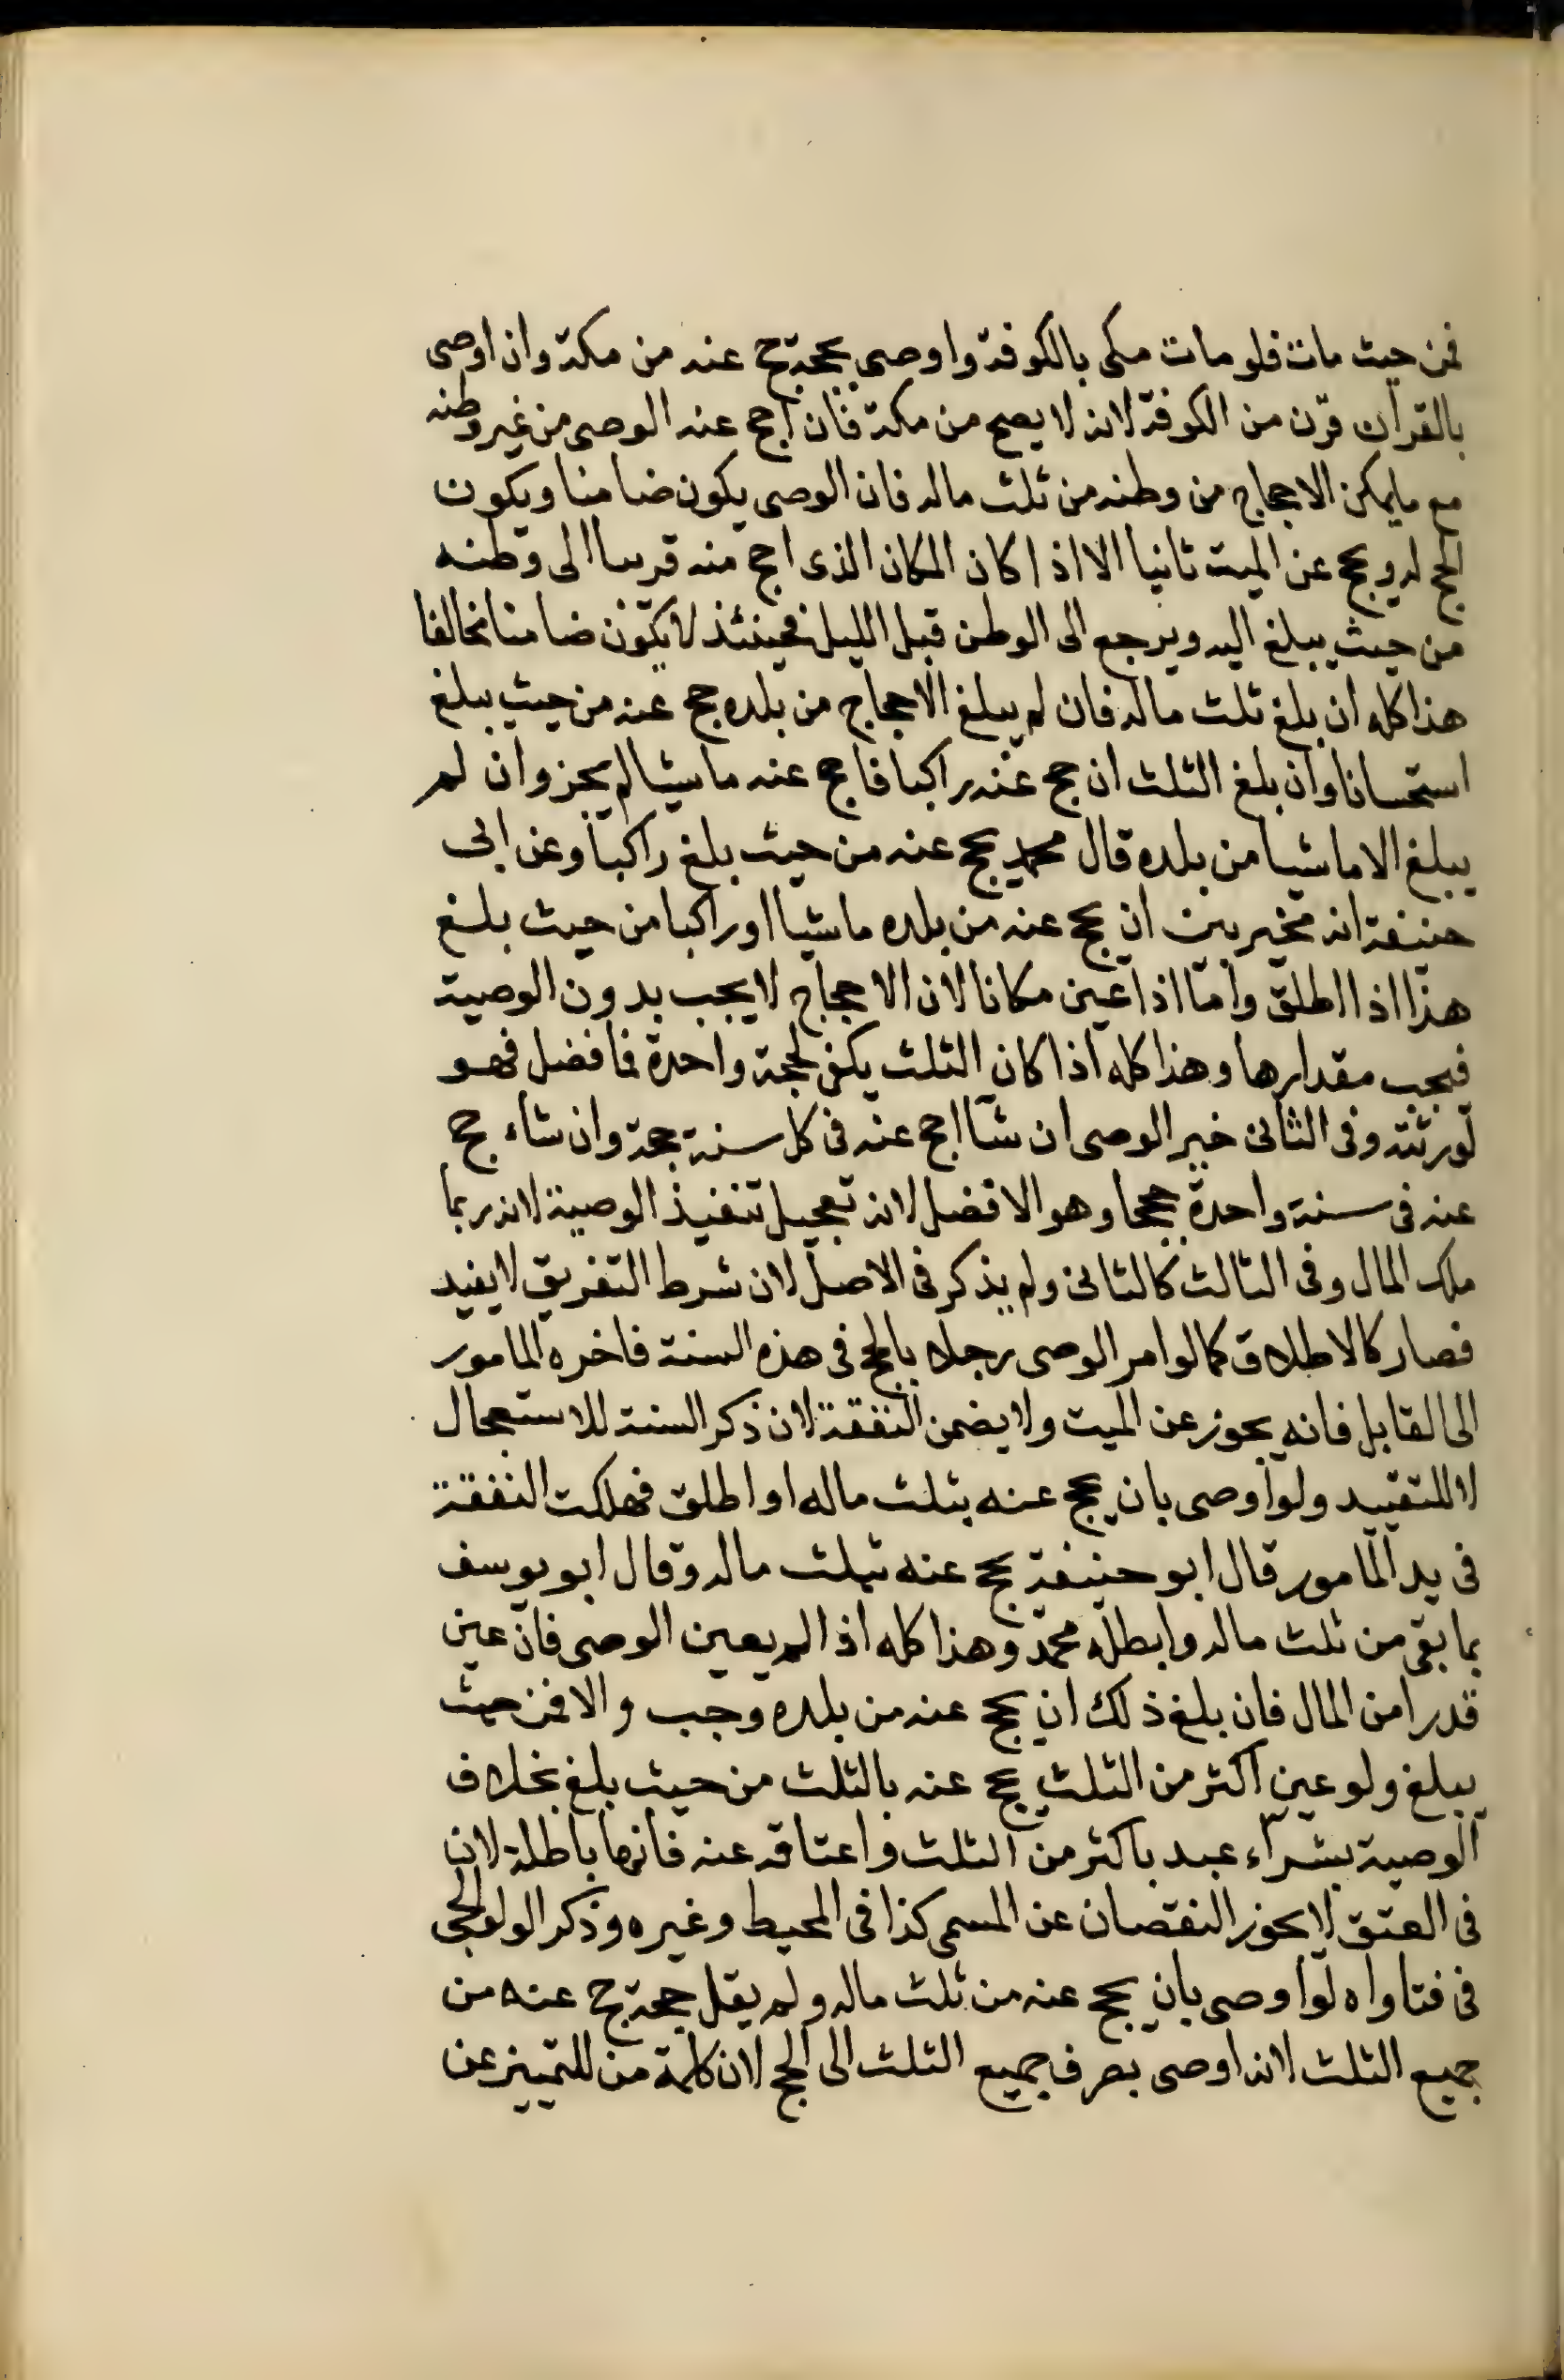 فمن حيث مات فلو مات مكى بالكوفة واوصى بحجة حج عنه من مكة وان اوصى
بالقرآن قرن من الكوفة لانه لا يصح من مكة فان احج عنه الوصى من غير وطنه
مع ما يمكن الاحجاج من وطنه من ثلث ماله فان الوصى يكون ضامنا ويكون
الحج له ويحج عن الميت ثانيا الا اذا كان المكان الذى احج منه قريبا الى وطنه
من حيث يبلغ اليه ويرجع الى الوطن قبل الليل فحينئذ لا يكون ضامنا مخالفا
هذا كله ان بلغ ثلث ماله فان لم يبلغ الاحجاج من بلده حج عنه من حيث يبلغ
استحسانا وان بلغ الثلث ان حج عنه راكبا فاحج عنه ماشيا لم يجز وان لم
يبلغ الا ماشيا من بلده قال محمد يحج عنه من حيث بلغ راكبا وعن ابى
حنيفة انه مخير بين ان يحج عنه من بلده ماشيا او راكبا من حيث بلغ
هذا اذا اطلق واما اذا عين مكانا لان الاحجاج لا يجب بدون الوصية
فيجب مقدارها وهذا كله اذا كان الثلث يكفى لحجة واحدة فما فضل فهو
لورثته وفى الثانى خير الوصى ان شا احج عنه فى كل سنة حجة وان شاء حج
عنه فى سنة واحدة حججا وهو الافضل لانه تعجيل تنفيذ الوصية لانه ربما
هلك المال وفى الثالث كالثانى ولم يذكر فى الاصل لان شرط التفريق لا يفيد
فصار كالاطلاق كما لو امر الوصى رجلا بالحج فى هذه السنة فاخره المامور
الى القابل فانه يجوز عن الميت ولا يضمن النفقة لان ذكر السنة للاستعجال
لا للتقييد ولو اوصى بان يحج عنه بثلث ماله او اطلق فهلكت النفقة
فى يد المامور قال ابو حنيفة يحج عنه بثلث ماله وقال ابو يوسف
بما بقى من ثلث ماله وابطله محمد وهذا كله اذا لم يعين الوصى فان عين
قدرا من المال فان بلغ ذلك ان يحج عنه من بلده وجب والا فمن حيث
يبلغ ولو عين اكثر من الثلث يحج عنه بالثلث من حيث بلغ بخلاف
الوصية بشراء عبد باكثر من الثلث واعتاقه عنه فانها باطلة لان
فى العتق لا يجوز النقصان عن المسمى كذا فى المحيط وغيره وذكر الولوالجى
فى فتاواه لو اوصى بان يحج عنه من ثلث ماله ولم يقل حجة حج عنه من
جميع الثلث لانه اوصى بصرف جميع الثلث الى الحج لان كلمة من للتمييز عن